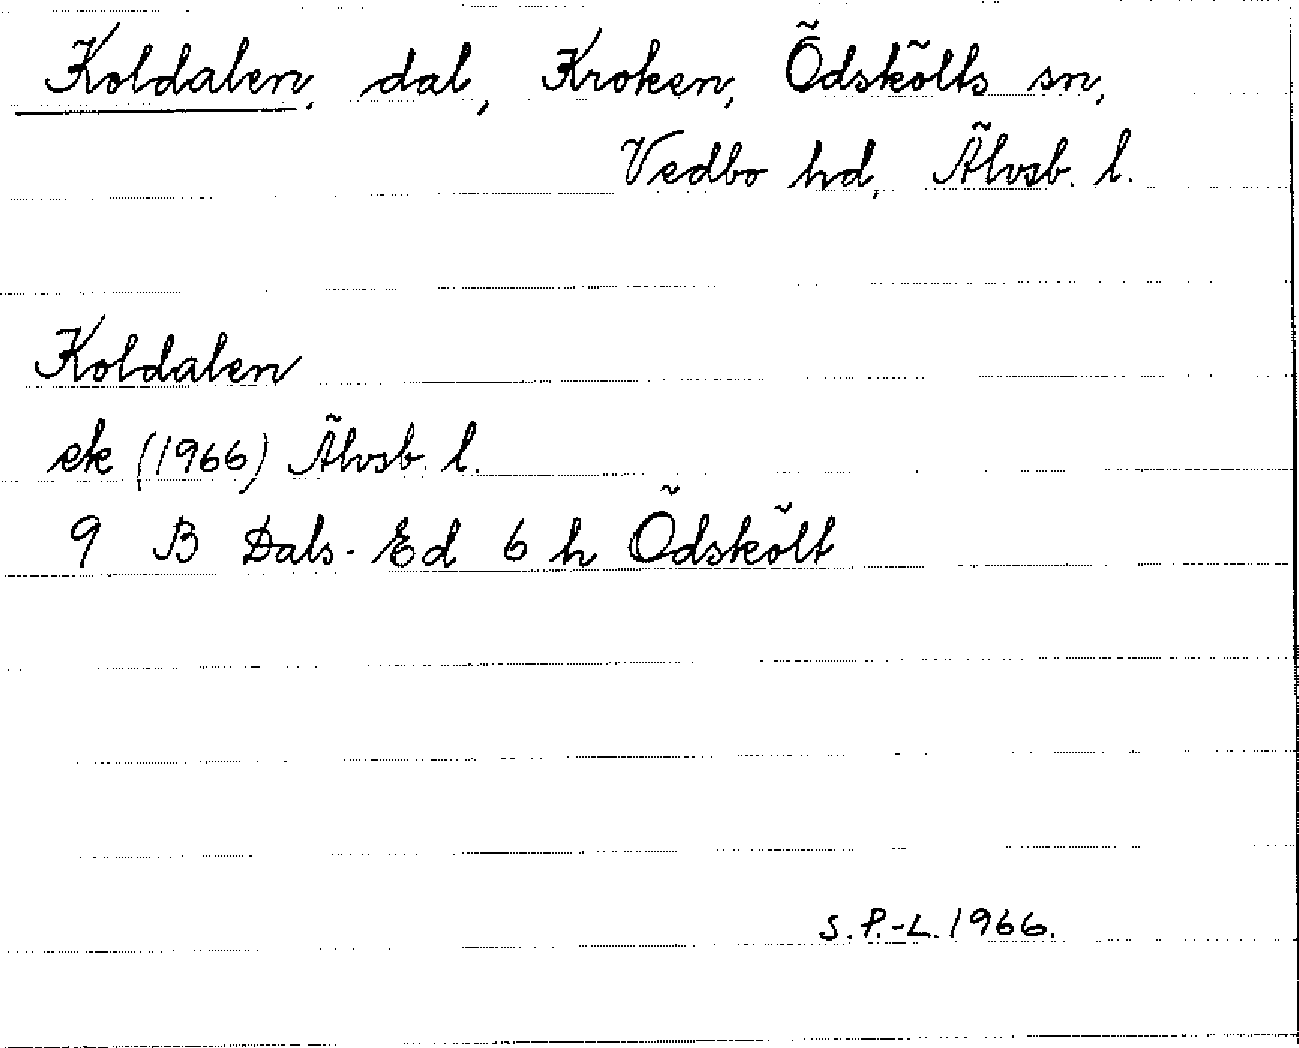 Koldalen, dal, Kroken, Ödskölts sn,
Vedbo hd, Älvsb. l.
Koldalen
ek (1966) Älvsb. l.
9 B Dals-Ed 6 h Ödskölt
S.P.-L. 1966.